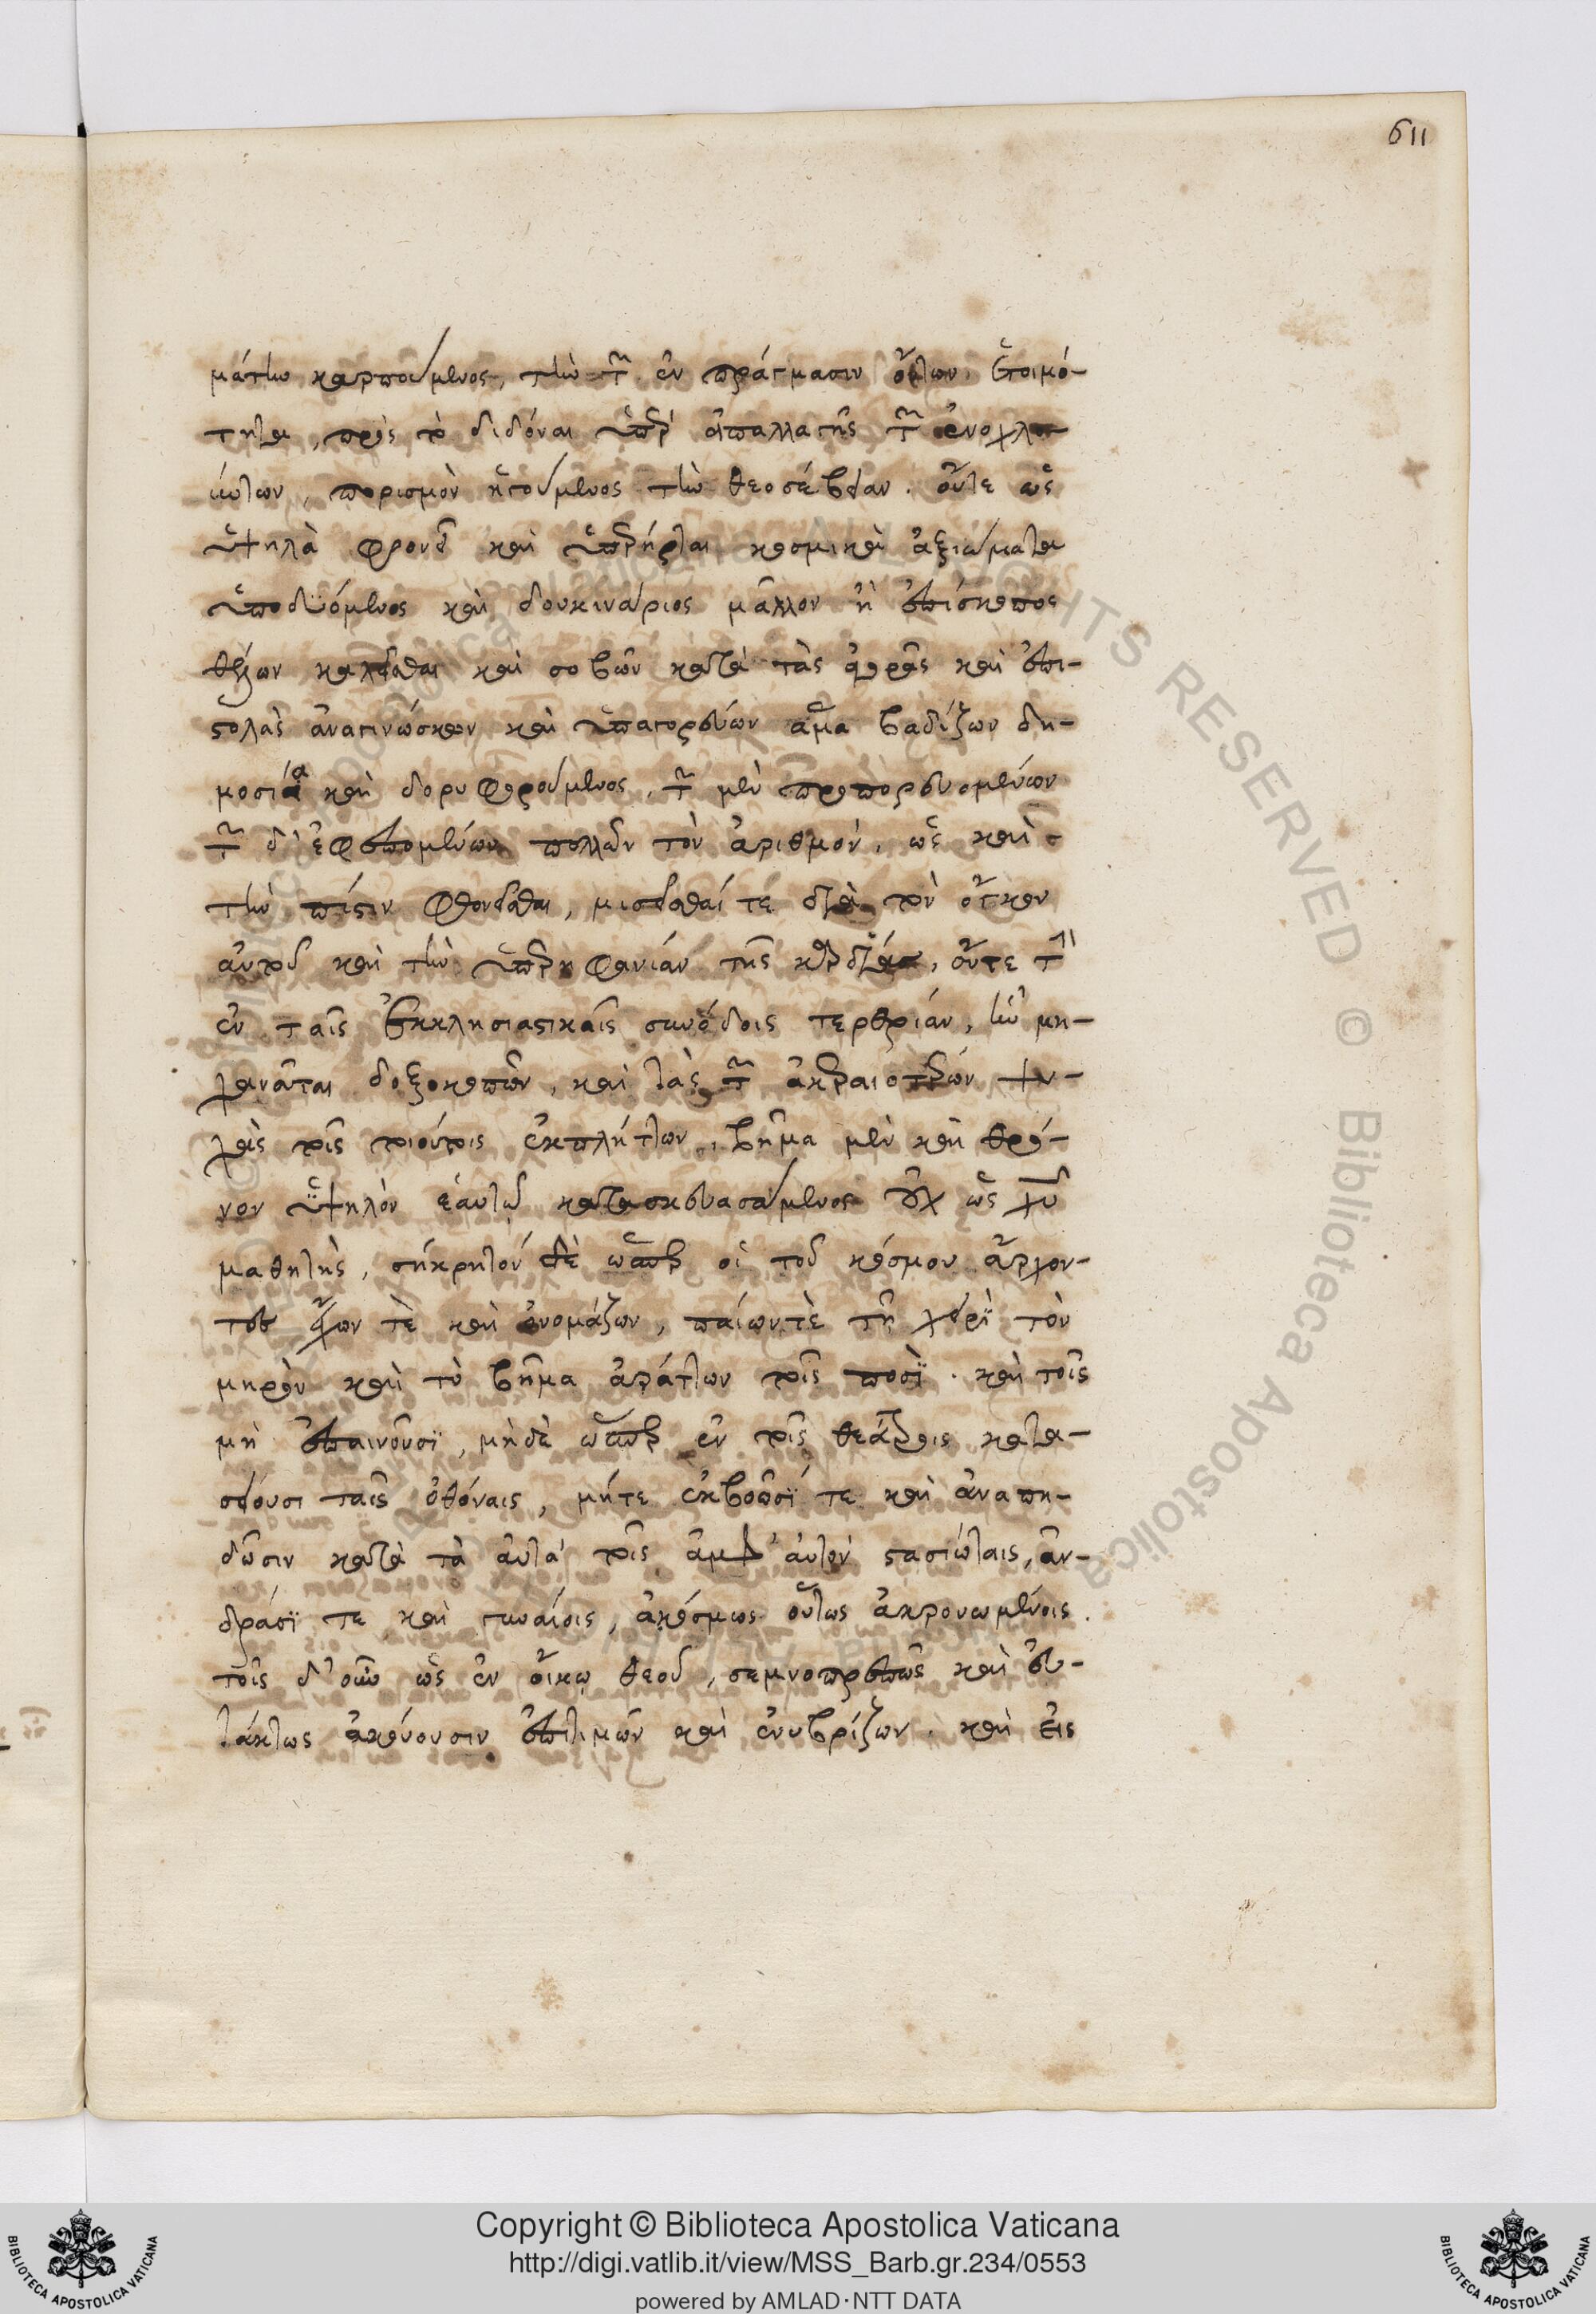 611
μάτων καρπούμενος, τὴν τῶν ἐν πράγμασιν ὄντων ἑτοιμό-
τητα, πρὸς τὸ διδόναι ὑπὲρ ἀπαλλαγῆς τῶν ἐνοχλο-
ύντων, πορισμὸν ἡγούμενος τὴν θεοσέβειαν. οὔτε ὡς
ὑψηλὰ φρονεῖ καὶ ὑπερῆρται κοσμικὰ ἀξιώματα
ὑποδυόμενος καὶ δουκινάριος μᾶλλον ἢ ἐπίσκοπος
θέλων καλεῖσθαι καὶ σοβῶν κατὰ τὰς ἀγορὰς καὶ ἐπι-
στολὰς ἀναγινώσκων καὶ ὑπαγορεύων ἅμα βαδίζων δη-
μοσίᾳ καὶ δορυφορούμενος, τῶν μὲν προπορευομένων
τῶν δ' ἐφεπομένων πολλῶν τὸν ἀριθμόν, ὡς καὶ
τὴν πίστιν φθονεῖσθαι, μισεῖσθαί τε διὰ τὸν ὄγκον
αὐτοῦ καὶ τὴν ὑπερηφανίαν τῆς καρδίας, οὔτε τὴν
ἐν ταῖς ἐκκλησιαστικαῖς συνόδοις τερθρίαν, ἣν μη-
χανᾶται δοξοκοπῶν, καὶ τὰς τῶν ἀκεραιοτέρων ψυ-
χὰς τοῖς τοιούτοις ἐκπλήττων, βῆμα μὲν καὶ θρό-
νον ὑψηλὸν ἑαυτῷ κατασκευασάμενος οὐχ ὡς χυ
μαθητής, σήκρητόν δὲ ὥσπερ οἱ τοῦ κόσμου ἄρχον-
τες ἔχων τὲ καὶ ὀνομάζων, παίων τὲ τῇ χειρὶ τὸν
μηρὸν καὶ τὸ βῆμα ἀράττων τοῖς ποσὶ. καὶ τοῖς
μὴ ἐπαινοῦσι, μὴδὲ ὥσπερ ἐν τοῖς θεάτροις κατα-
σείουσι ταῖς ὀθόναις, μήτε ἐκβοῶσί τε καὶ ἀναπη-
δῶσιν κατὰ τὰ αὐτὰ τοῖς ἀμφ' αὐτὸν στασιώταις, ἀν-
δράσι τε καὶ γυναίοις, ἀκόσμως οὕτως ἀκροουωμένοις.
τοῖς δ' οὖν ὡς ἐν οἴκῳ θεοῦ, σεμνοπρεπῶς καὶ εὐ-
τάκτως ἀκούουσιν ἐπιτιμῶν καὶ ἐνυβρίζων. καὶ εἰς
Copyright © Biblioteca Apostolica Vaticana
http://digi.vatlib.it/view/MSS_Barb.gr.234/0553
powered by AMLAD·NTT DATA